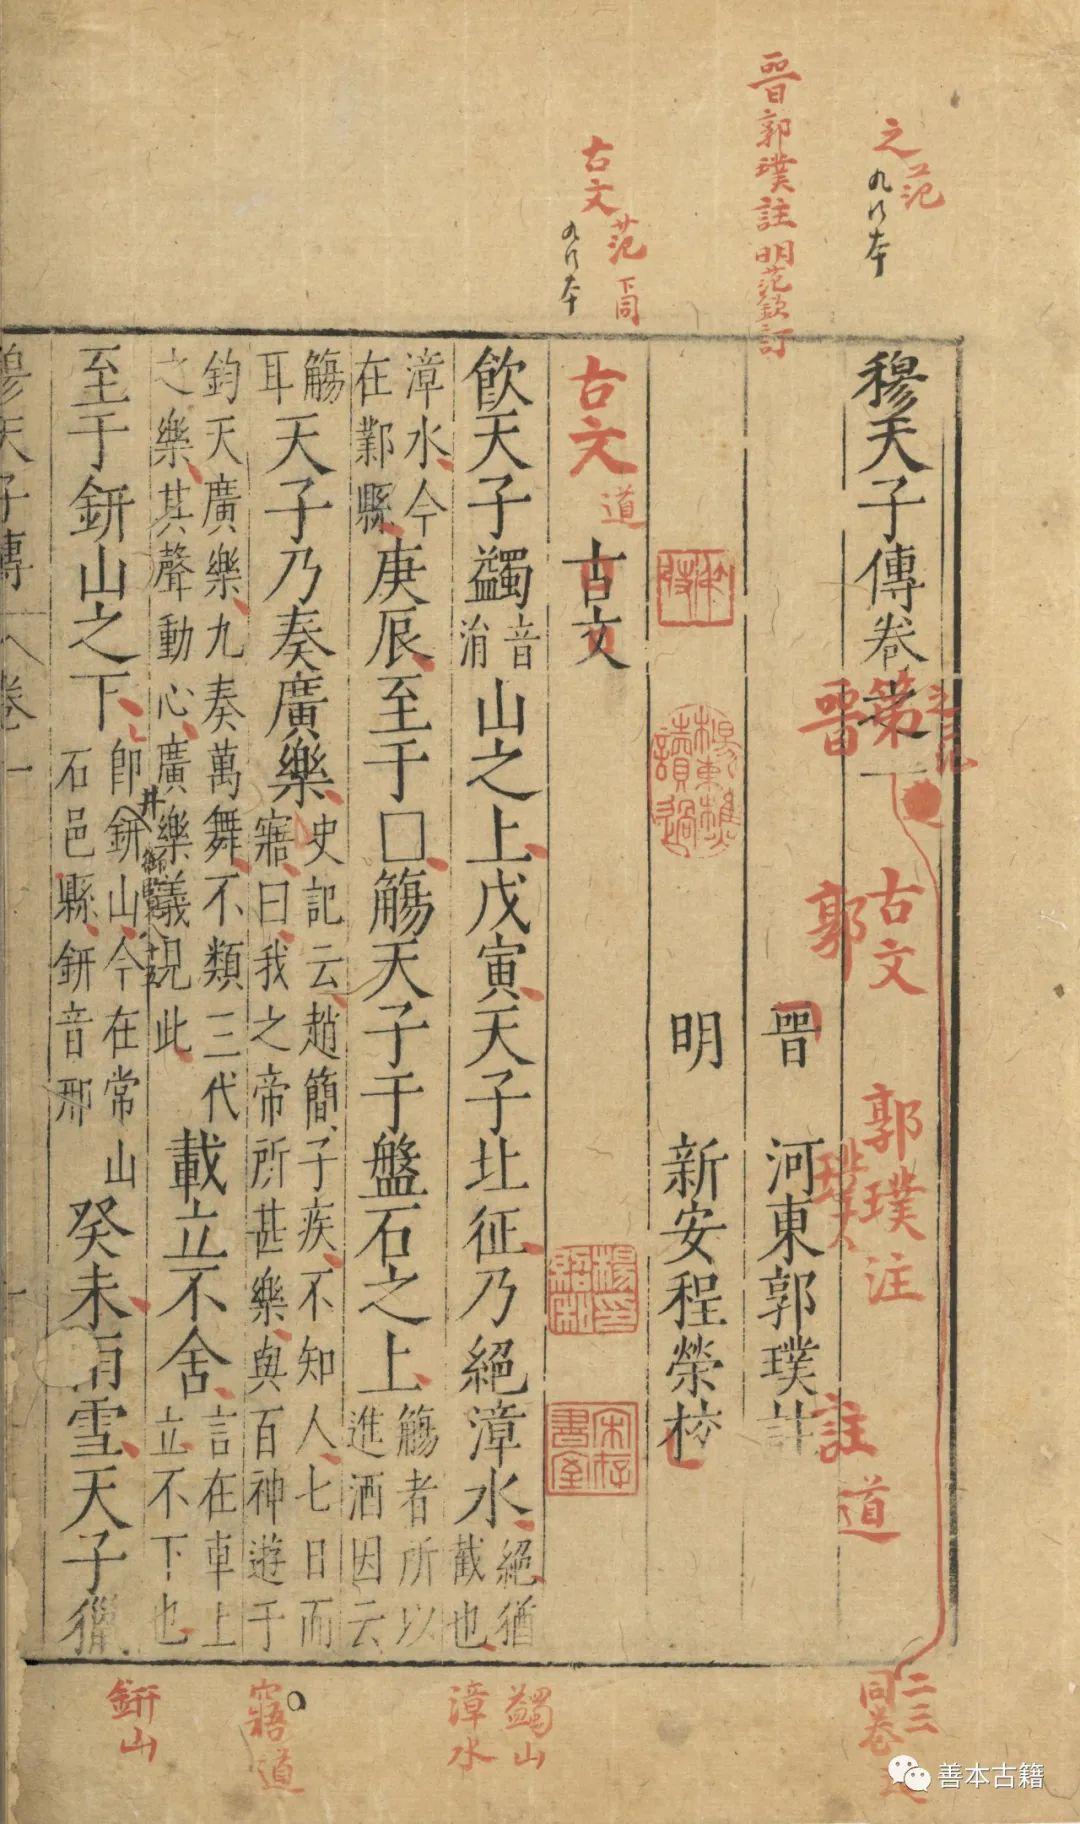 穆天子傳卷之一
晉 河東郭璞註
明 新安程榮校
古文
飲天子蠲音消山之上戊寅天子北征乃絕漳水絕猶截也
漳水今在鄴縣庚辰至于□觴天子于盤石之上觴者所以進酒因云
觴耳天子乃奏廣樂史記云趙簡子疾不知人七日而寤曰我之帝所甚樂與百神遊于
鈞天廣樂九奏萬舞不類三代之樂其聲動心廣樂義見此載立不舍言在車上立不下也
至于鈃山之下即鈃山今在常山石邑縣鈃音邢癸未雨雪天子獵
穆天子傳 卷一
之范
九行本
晉郭璞註明范欽訂
古文
范下同
九行本
古文
道
第
晉
之范
古文
郭
郭璞注
璞
註
道
二三
卷同
蠲山
漳水
寤道
鈃山
井
楊東樵讀過
楊印紹和
宋存書室
善本古籍